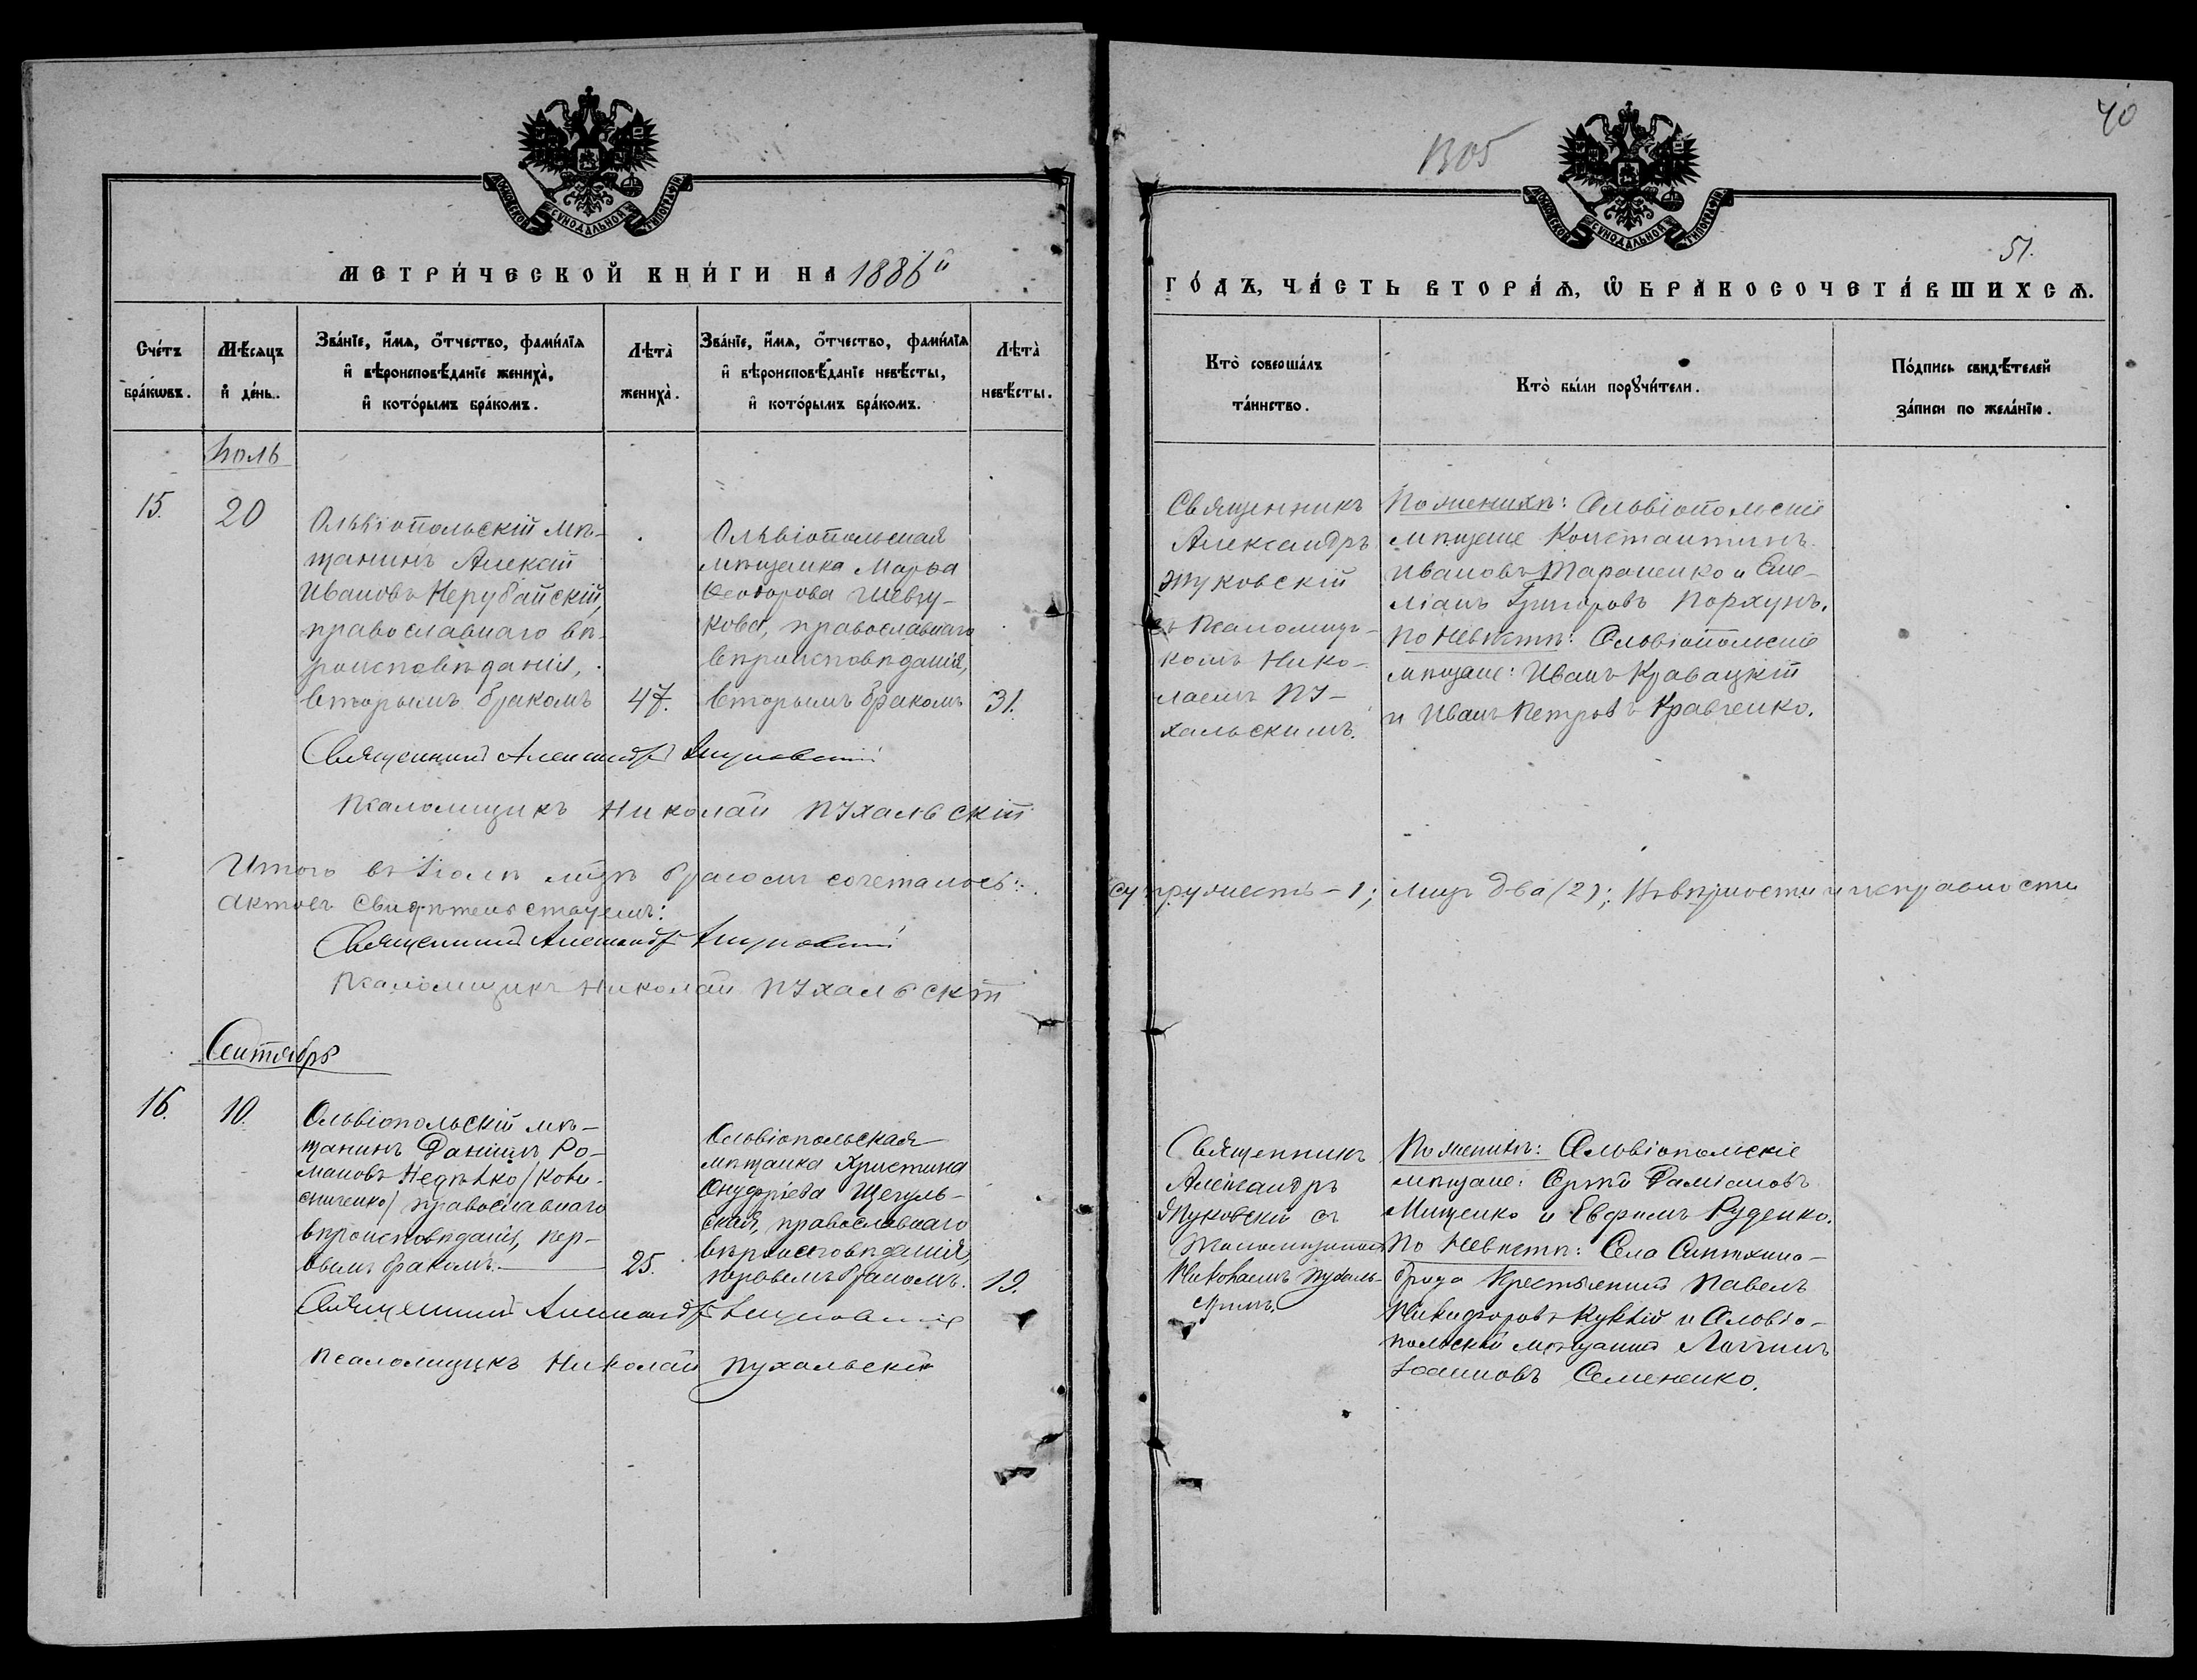 МОСКОВСКОЙ СѴНОДАЛЬНОЙ ТИПОГРАФІИ
МЕТРИ́ЧЕСКОЙ КНИ́ГИ НА 1886й
Сче́тъ бра́кѡвъ.
Мѣ́сяцъ и҆ де́нь.
Зва́нїе, и҆́мѧ, ѻ҆́тчество, фами́лїѧ
и҆ вѣроисповѣ́данїе жениха̀,
и҆ кото́рымъ бра́комъ.
Лѣта̀ жениха̀.
Зва́нїе, и҆́мѧ, ѻ҆́тчество, фами́лїѧ
и҆ вѣроисповѣ́данїе невѣ́сты,
и҆ кото́рымъ бра́комъ.
Лѣта̀ невѣ́сты.
Іюль
15.
20
Ольвіопольскій мѣ-
щанинъ Алексій
Ивановъ Нерубайскій,
православнаго вѣ-
роисповѣданія,
вторымъ бракомъ
47.
Ольвіопольская
мѣщанка Марѳа
Ѳеодорова Шевчу-
кова, православнаго
вѣроисповѣданія,
вторымъ бракомъ
31.
Священникъ Александръ Жуковскій
Псаломщикъ Николай Пухальскій
Итого въ Іюлѣ мѣцѣ бракомъ сочеталось:
Актовъ свидѣтельствуемъ:
Священникъ Александръ Жуковскій
Псаломщикъ Николай Пухальскій
Сентябрь
16.
10.
Ольвіопольскій мѣ-
щанинъ Даніилъ Ро-
мановъ Недѣлко /Коли-
сниченко/ православнаго
вѣроисповѣданія, пер-
вымъ бракомъ.
25.
Ольвіопольская
мѣщанка Христина
Онуфріева Щегуль-
ская, православнаго
вѣроисповѣданія,
первымъ бракомъ.
19.
Священникъ Александръ Жуковскій
Псаломщикъ Николай Пухальскій
40
1305
МОСКОВСКОЙ СѴНОДАЛЬНОЙ ТИПОГРАФІИ
51.
ГО́ДЪ, ЧА́СТЬ ВТОРА́Ѧ, Ѡ҆ БРАКОСОЧЕТА́ВШИХСѦ.
Кто̀ соверша́лъ
та́инство.
Кто̀ бы́ли порꙋчи́тели.
По́дпись свидѣ́телей
за́писи по жела́нїю.
Священникъ
Александръ
Жуковскій
съ Псаломщи-
комъ Нико-
лаемъ Пу-
хальскимъ.
По женихѣ: Ольвіопольскіе
мѣщане Константинъ
Ивановъ Тараненко и Еме-
ліанъ Григоровъ Порхунъ.
По невѣстѣ: Ольвіопольскіе
мѣщане: Иванъ Кравацкій
и Иванъ Петровъ Кравченко.
супружествъ – 1; лицъ два (2); Въ вѣрности и исправности
Священникъ
Александръ
Жуковскій съ
Псаломщикомъ
Николаемъ Пухаль-
скимъ.
По женихѣ: Ольвіопольскіе
мѣщане: Сергѣй Даміановъ
Мищенко и Евфимъ Руденко.
По невѣстѣ: Села Синюхино-
брода крестьянинъ Павелъ
Никифоровъ и Ольвіо-
польскій мѣщанинъ Логгинъ
Іоанновъ Семененко.